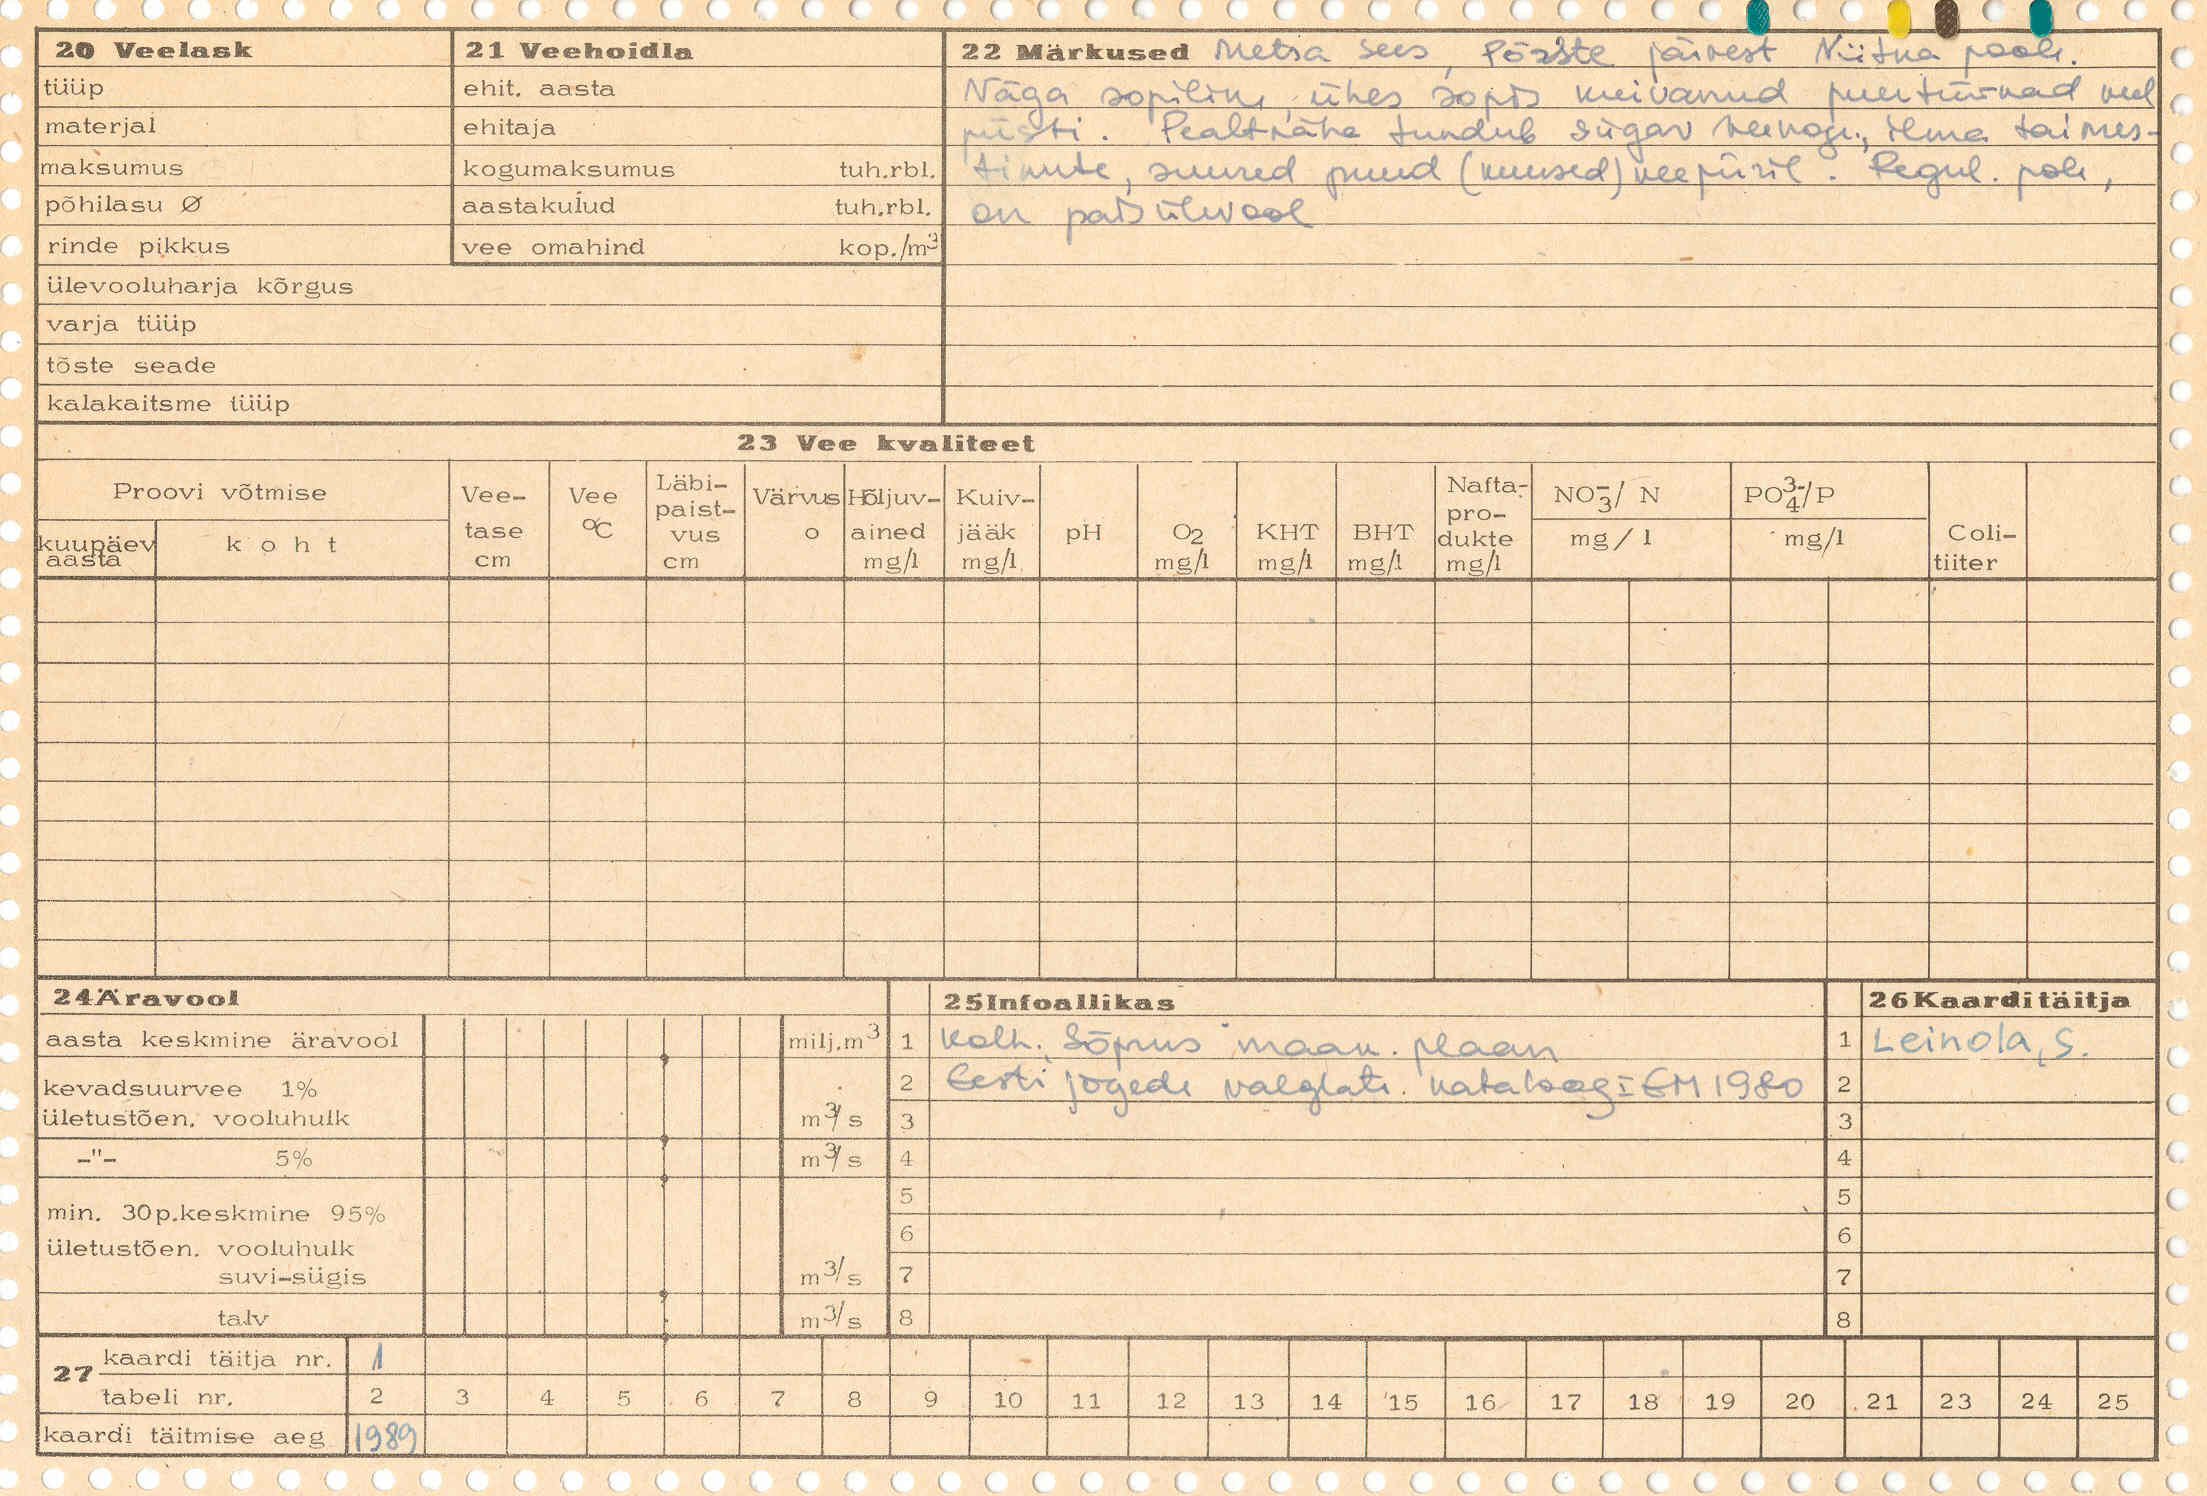 20 Veelask
tüüp
materjal
maksumus
põhilasu Ø
rinde pikkus
ülevooluharja kõrgus
varja tüüp
tõste seade
kalakaitsme tüüp
21 Veehoidla
ehit. aasta
ehitaja
kogumaksumus tuh.rbl.
aastakulud tuh.rbl.
vee omahind kop./m³
22 Märkused Metsa sees, järvest Viitna poole.
Näga sopiline, ühes sopis kuivanud puutüvnad veel
püsti. Pealtnäha tundub sügav veekogu, ilma taimes-
tikuta, suured puud (kuused) veepiiril. Regul. pole,
on paisülevool
23 Vee kvaliteet
Proovi võtmise
kuupäev aasta
koht
Vee-tase cm
Vee °C
Läbi-paist-vus cm
Värvus o
Hõljuv-ained mg/l
Kuiv-jääk mg/l
pH
O₂ mg/l
KHT mg/l
BHT mg/l
Nafta-pro-dukte mg/l
NO₃⁻/N mg/l
PO₄³⁻/P mg/l
Coli-tiiter
24 Äravool
aasta keskmine äravool milj.m³
kevadsuurvee 1%
ületustõen. vooluhulk m³/s
-"- 5% m³/s
min. 30p.keskmine 95%
ületustõen. vooluhulk
suvi-sügis m³/s
talv m³/s
25 Infoallikas
1 Kolh. Sõprus maak. plaan
2 Eesti jõgede valglate kataloog I EM 1980
3
4
5
6
7
8
26 Kaardi täitja
1 Leinola, S.
2
3
4
5
6
7
8
27 kaardi täitja nr. 1
tabeli nr. 2 3 4 5 6 7 8 9 10 11 12 13 14 15 16 17 18 19 20 21 23 24 25
kaardi täitmise aeg 1989